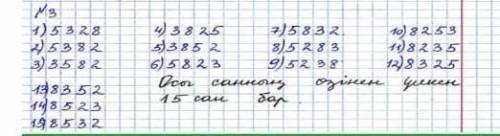 №3
1) 5328 4) 3825 7) 5832 10) 8253
2) 5382 5) 3852 8) 5283 11) 8235
3) 3582 6) 5823 9) 5238 12) 8325
13) 8352 Осы санның өзінен үлкен
14) 8523 15 сан бар.
15) 8532